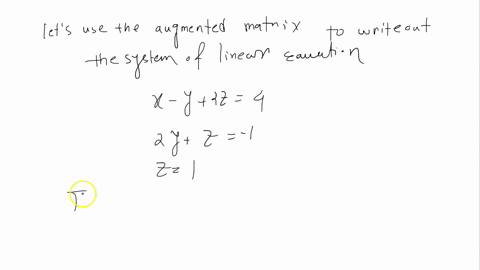 let's use the augmented matrix to write out
the system of linear equation
x - y + 2z = 4
2y + z = -1
z = 1
T